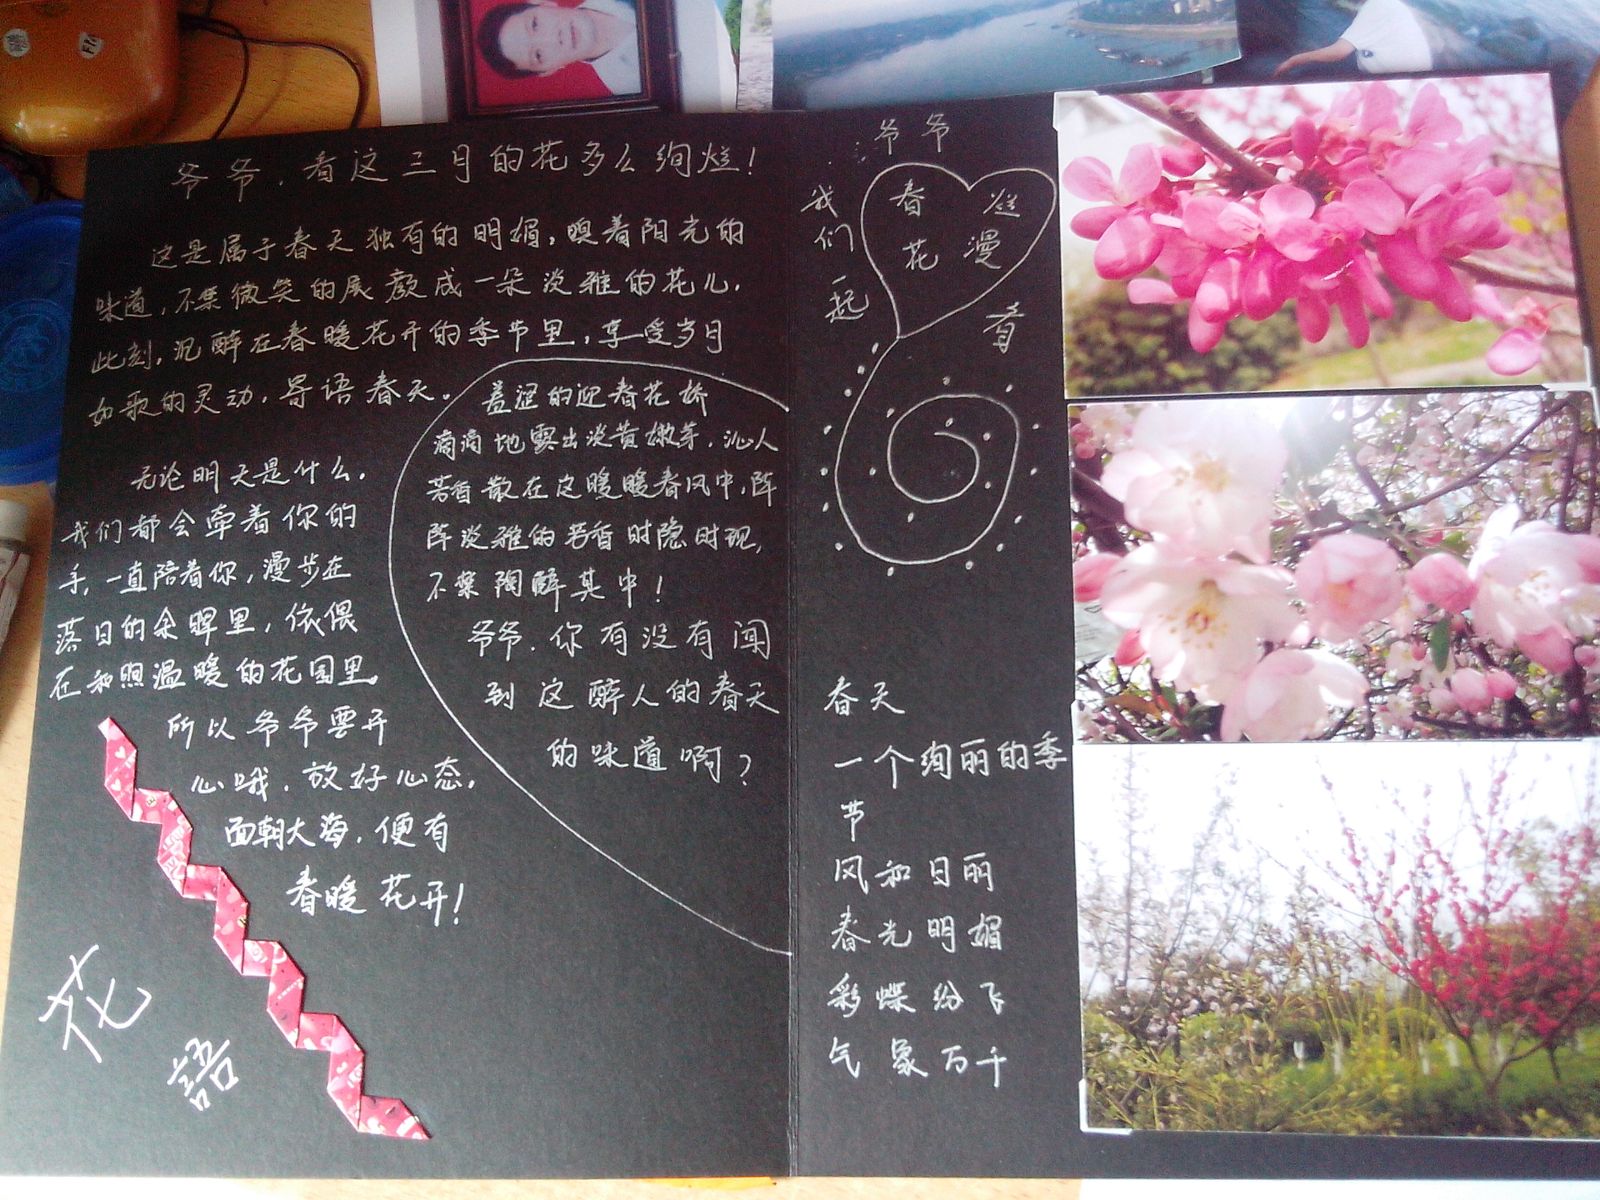 爷爷，看这三月的花多么绚烂！
这是属于春天独有的明媚，嗅着阳光的
味道，不禁微笑的展颜成一朵淡雅的花儿．
此刻，沉醉在春暖花开的季节里，享受岁月
如歌的灵动，寄语春天．
羞涩的迎春花娇
滴滴地露出淡黄嫩芽．沁人
芳香散在这暖暖春风中，阵
阵淡雅的芳香时隐时现，
不禁陶醉其中！
爷爷．你有没有闻
到这醉人的春天
的味道啊？
无论明天是什么．
我们都会牵着你的
手，一直陪着你，漫步在
落日的余晖里，依偎
在和煦温暖的花园里．
所以爷爷要开
心哦．放好心态．
面朝大海，便有
春暖花开！
花
語
爷爷
我们一起
看
春花
烂漫
春天
一个绚丽的季
节
风和日丽
春光明媚
彩蝶纷飞
气象万千